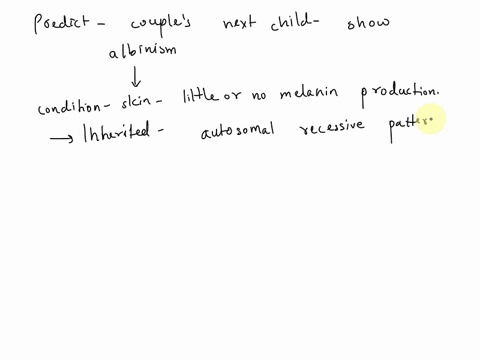 Predict - couple's next child - show
albinism
↓
condition - skin - little or no melanin production.
→ Inherited - autosomal recessive patter